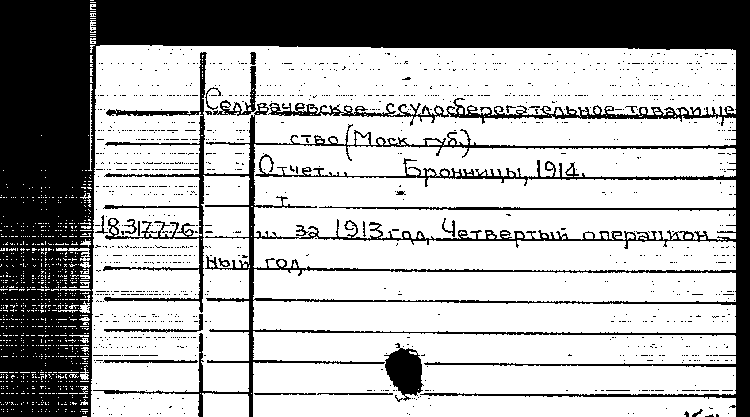 Селивачевское ссудосберегательное товарище
ство (Моск. губ.).
Отчет... Бронницы, 1914.
т.
18.317.776 - - ... за 1913 год. Четвертый операцион-
ный год.